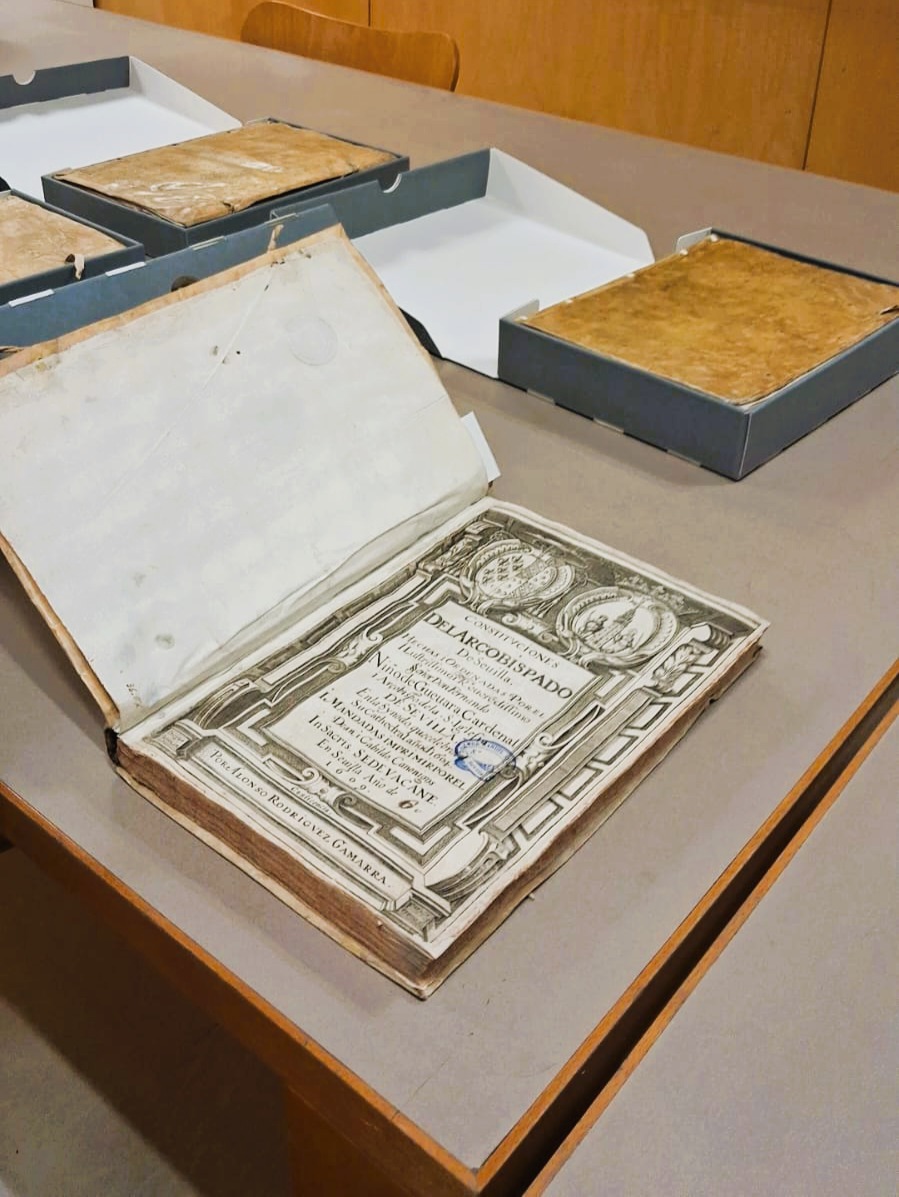 CONSTITVCIONES
DEL ARCOBISPADO
De Seuilla.
HECHAS I ORDENADAS POR EL
Ilustrissimo i Reuerendissimo
Señor Don Fernando
Niño de Gueuara Cardenal
i Arçobispo de la S. Iglesia
DE SEVILLA
En la Synodo que celebro en
Su Cathedral año d̃ 1604
I MANDADAS IMPRIMIR POR EL
Dean i Cabildo, Canonigos
In Sacris. SEDE VACANTE.
En Seuilla Año de
1609.
POR ALONSO RODRIGVEZ GAMARRA.